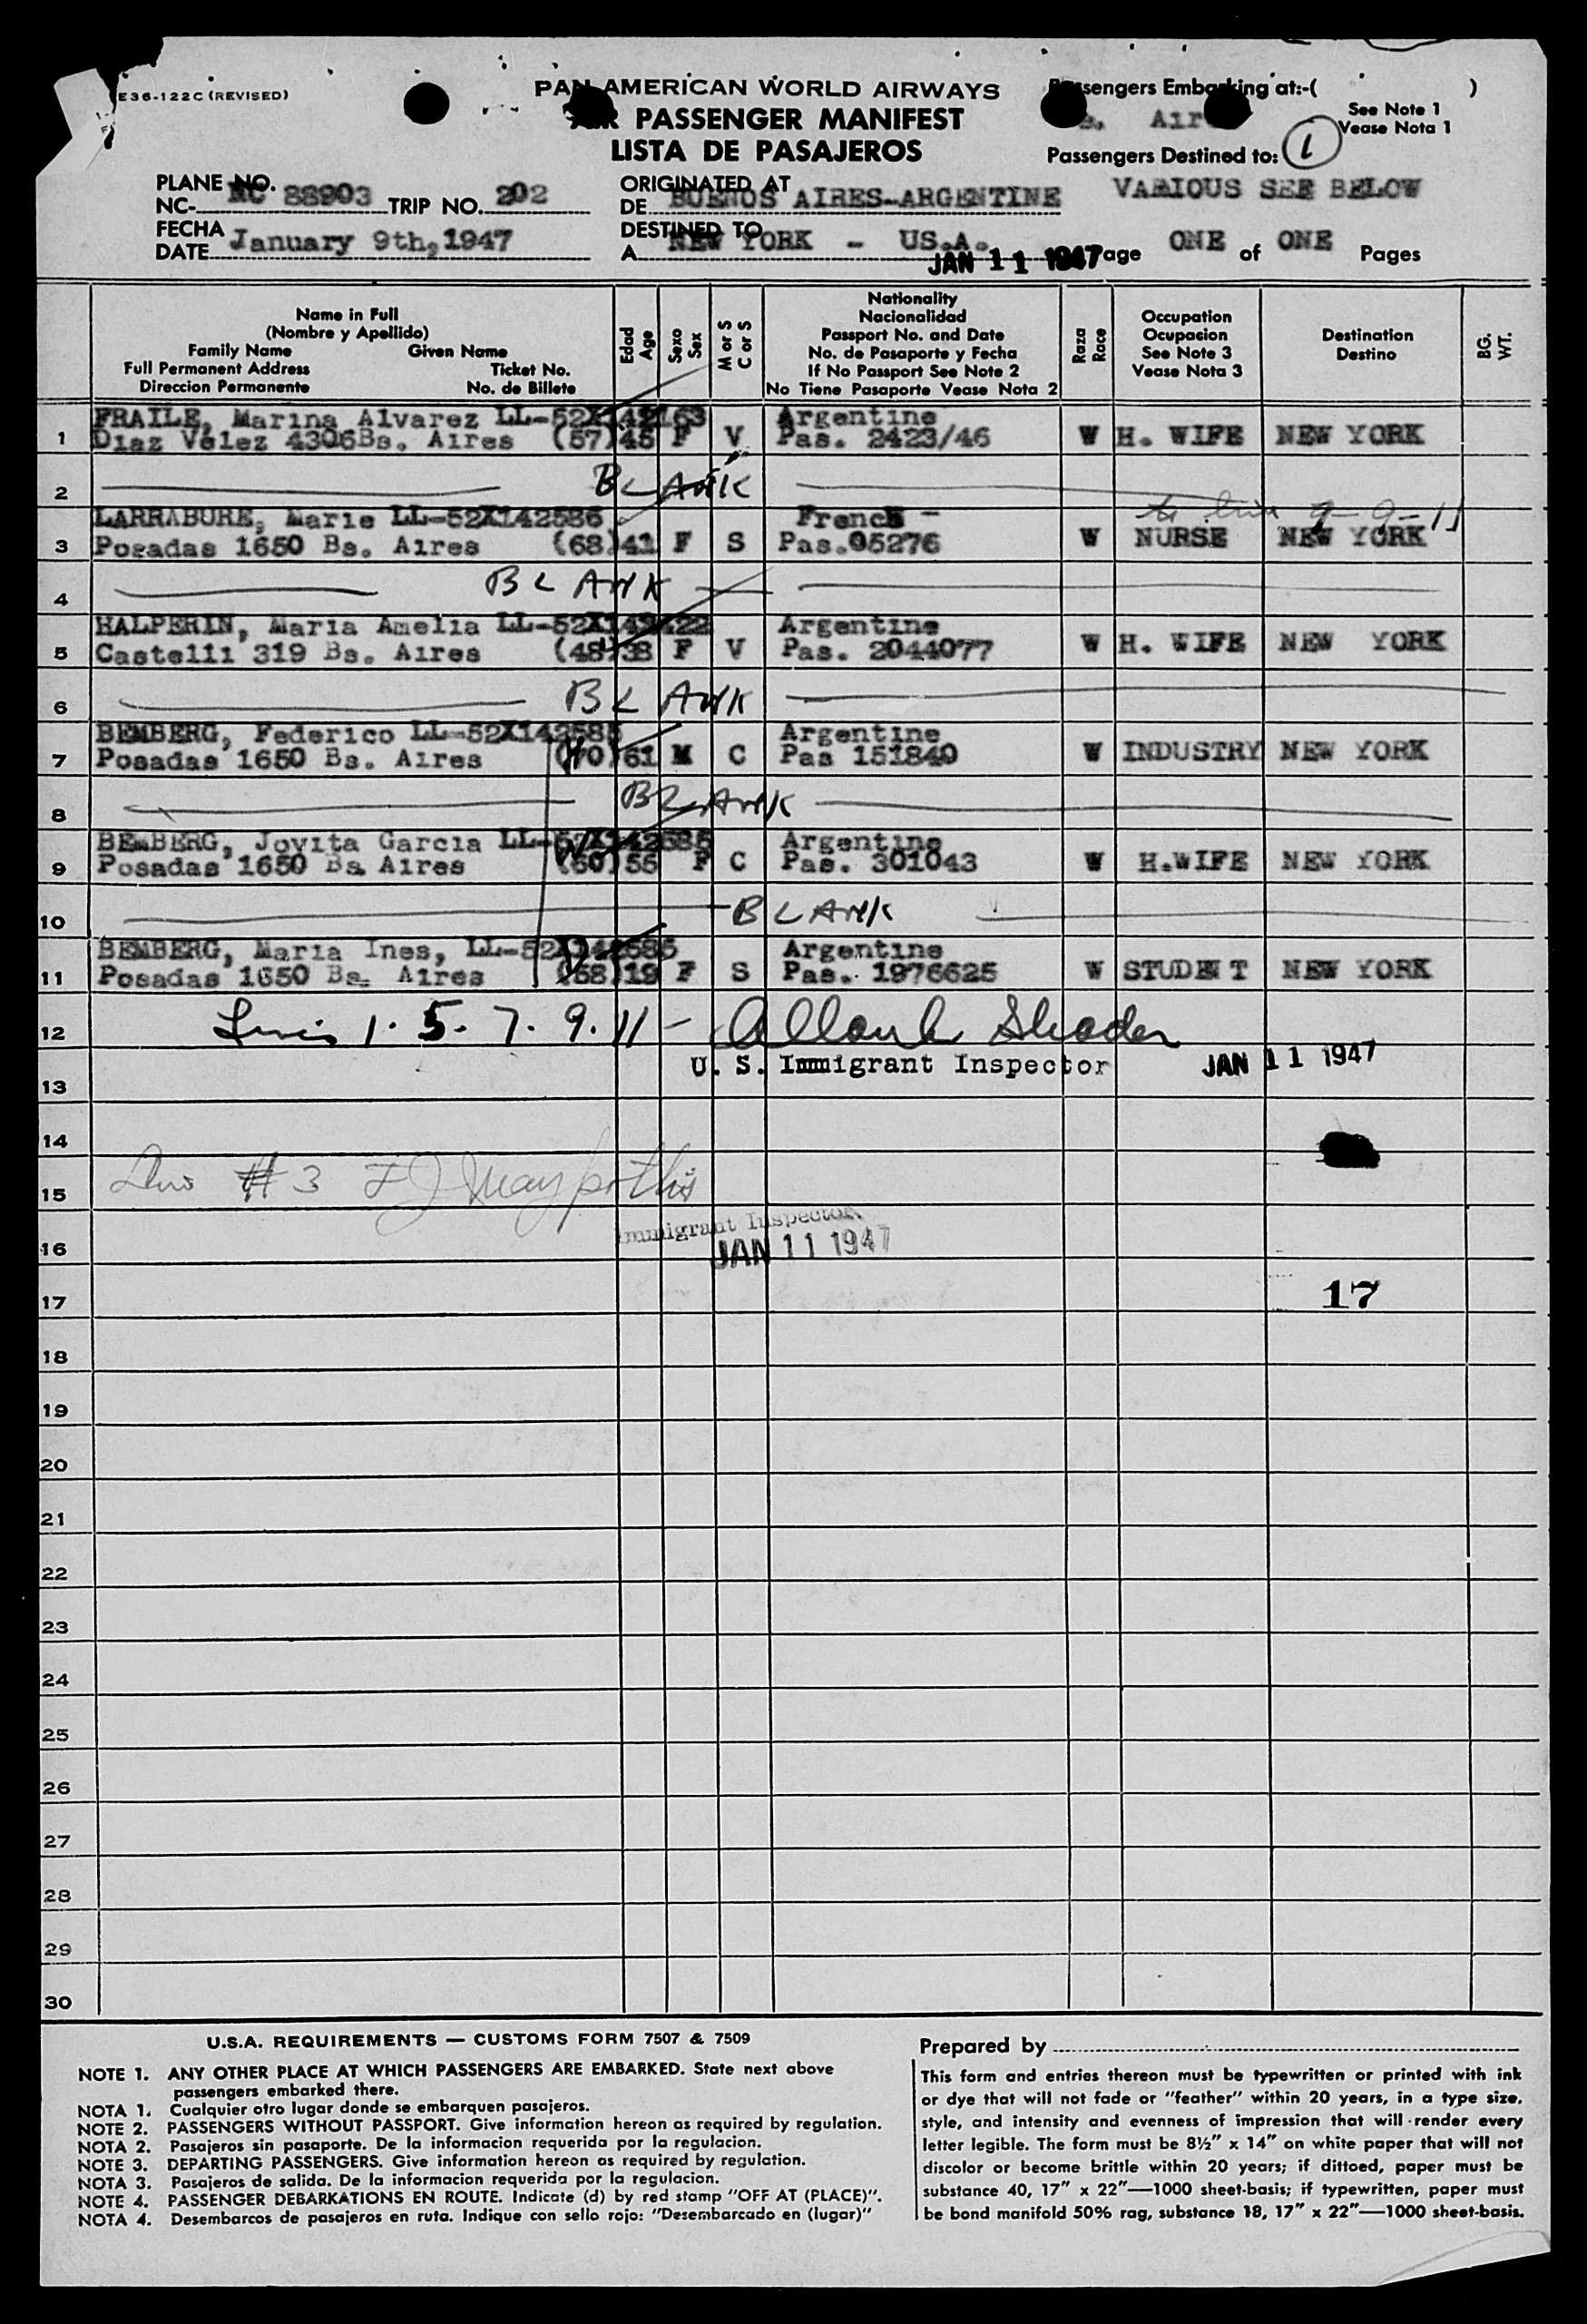 E36-122C (REVISED)
PAN AMERICAN WORLD AIRWAYS
AIR PASSENGER MANIFEST
LISTA DE PASAJEROS
Passengers Embarking at:-( )
See Note 1
Vease Nota 1
Passengers Destined to: 1
VARIOUS SEE BELOW
PLANE NO.
NC- NC 88903 TRIP NO. 202
FECHA
DATE January 9th, 1947
ORIGINATED AT
DE BUENOS AIRES-ARGENTINE
DESTINED TO
A NEW YORK - US.A.
JAN 11 1947
Page ONE of ONE Pages
Name in Full
(Nombre y Apellido)
Family Name Given Name
Full Permanent Address Ticket No.
Direccion Permanente No. de Billete
Edad Age
Sexo Sex
M or S C or S
Nationality
Nacionalidad
Passport No. and Date
No. de Pasaporte y Fecha
If No Passport See Note 2
No Tiene Pasaporte Vease Nota 2
Raza Race
Occupation
Ocupacion
See Note 3
Vease Nota 3
Destination
Destino
BG. WT.
1 FRAILE, Marina Alvarez LL-52X142163 Argentine
Diaz Velez 4306Bs. Aires (57) 45 F V Pas. 2423/46 W H. WIFE NEW YORK
2 BLANK
3 LARRABURE, Marie LL-52X142586 French -
Posadas 1650 Bs. Aires (68) 41 F S Pas.05276 W NURSE NEW YORK
4 BLANK
5 HALPERIN, Maria Amelia LL-52X142422 Argentine
Castelli 319 Bs. Aires (48) 38 F V Pas. 2044077 W H. WIFE NEW YORK
6 BLANK
7 BEMBERG, Federico LL-52X142585 Argentine
Posadas 1650 Bs. Aires (70) 61 M C Pas 151840 W INDUSTRY NEW YORK
8 BLANK
9 BEMBERG, Jovita Garcia LL-52X142585 Argentine
Posadas 1650 Bs. Aires (60) 55 F C Pas. 301043 W H.WIFE NEW YORK
10 BLANK
11 BEMBERG, Maria Ines, LL-52X142585 Argentine
Posadas 1650 Bs. Aires (58) 19 F S Pas. 1976625 W STUDENT NEW YORK
12 1. 5. 7. 9. 11 -
U. S. Immigrant Inspector JAN 11 1947
13
14
15 # 3
Immigrant Inspector
16 JAN 11 1947
17 17
18
19
20
21
22
23
24
25
26
27
28
29
30
U.S.A. REQUIREMENTS — CUSTOMS FORM 7507 & 7509
NOTE 1. ANY OTHER PLACE AT WHICH PASSENGERS ARE EMBARKED. State next above
passengers embarked there.
NOTA 1. Cualquier otro lugar donde se embarquen pasajeros.
NOTE 2. PASSENGERS WITHOUT PASSPORT. Give information hereon as required by regulation.
NOTA 2. Pasajeros sin pasaporte. De la informacion requerida por la regulacion.
NOTE 3. DEPARTING PASSENGERS. Give information hereon as required by regulation.
NOTA 3. Pasajeros de salida. De la informacion requerida por la regulacion.
NOTE 4. PASSENGER DEBARKATIONS EN ROUTE. Indicate (d) by red stamp "OFF AT (PLACE)".
NOTA 4. Desembarcos de pasajeros en ruta. Indique con sello rojo: "Desembarcado en (lugar)"
Prepared by
This form and entries thereon must be typewritten or printed with ink
or dye that will not fade or "feather" within 20 years, in a type size,
style, and intensity and evenness of impression that will render every
letter legible. The form must be 8½" x 14" on white paper that will not
discolor or become brittle within 20 years; if dittoed, paper must be
substance 40, 17" x 22"—1000 sheet-basis; if typewritten, paper must
be bond manifold 50% rag, substance 18, 17" x 22"—1000 sheet-basis.